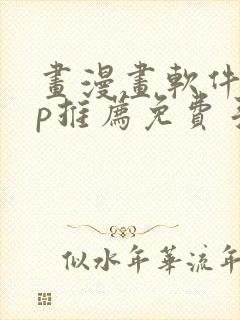 畫漫畫軟件
p推薦免費
似水年華流年